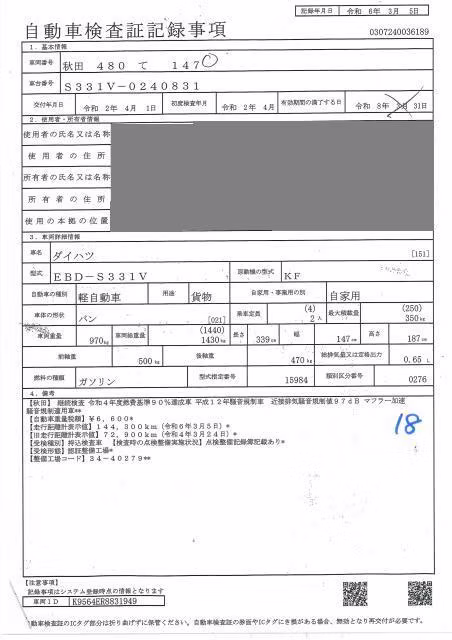 記録年月日 令和 6年 3月 5日
自動車検査証記録事項
0307240036189
1. 基本情報
車両番号 秋田 480 て 147
車台番号 S331V-0240831
交付年月日 令和 2年 4月 1日 初度検査年月 令和 2年 4月 有効期間の満了する日 令和 8年 3月 31日
2. 使用者・所有者情報
使用者の氏名又は名称
使用者の住所
所有者の氏名又は名称
所有者の住所
使用の本拠の位置
3. 車両詳細情報
車名 ダイハツ [151]
型式 EBD-S331V 原動機の型式 KF
自動車の種別 軽自動車 用途 貨物 自家用・事業用の別 自家用
車体の形状 バン [021] 乗車定員 (4) 2人 最大積載量 (250) 350kg
車両重量 970kg 車両総重量 (1440) 1430kg 長さ 339cm 幅 147cm 高さ 187cm
前軸重 500kg 後軸重 470kg 総排気量又は定格出力 0.65 L
燃料の種類 ガソリン 型式指定番号 15984 類別区分番号 0276
4. 備考
【秋田】 継続検査 令和4年度燃費基準90%達成車 平成12年騒音規制車 近接排気騒音規制値97dB マフラー加速
騒音規制適用車**
【自動車重量税額】￥6,600*
【走行距離計表示値】144,300km(令和6年3月5日)*
【旧走行距離計表示値】72,900km(令和4年3月24日)*
【受検種別】持込検査車 【検査時の点検整備実施状況】点検整備記録簿記載あり*
【受検形態】認証整備工場*
【整備工場コード】34-40279**
18
【注意事項】
記録事項はシステム登録時点の情報となります
車両ID K9564ER8831949
自動車検査証のICタグ部分は折り曲げずに保管ください。自動車検査証の券面やICタグにき損がある場合、無効となり再交付が必要です。